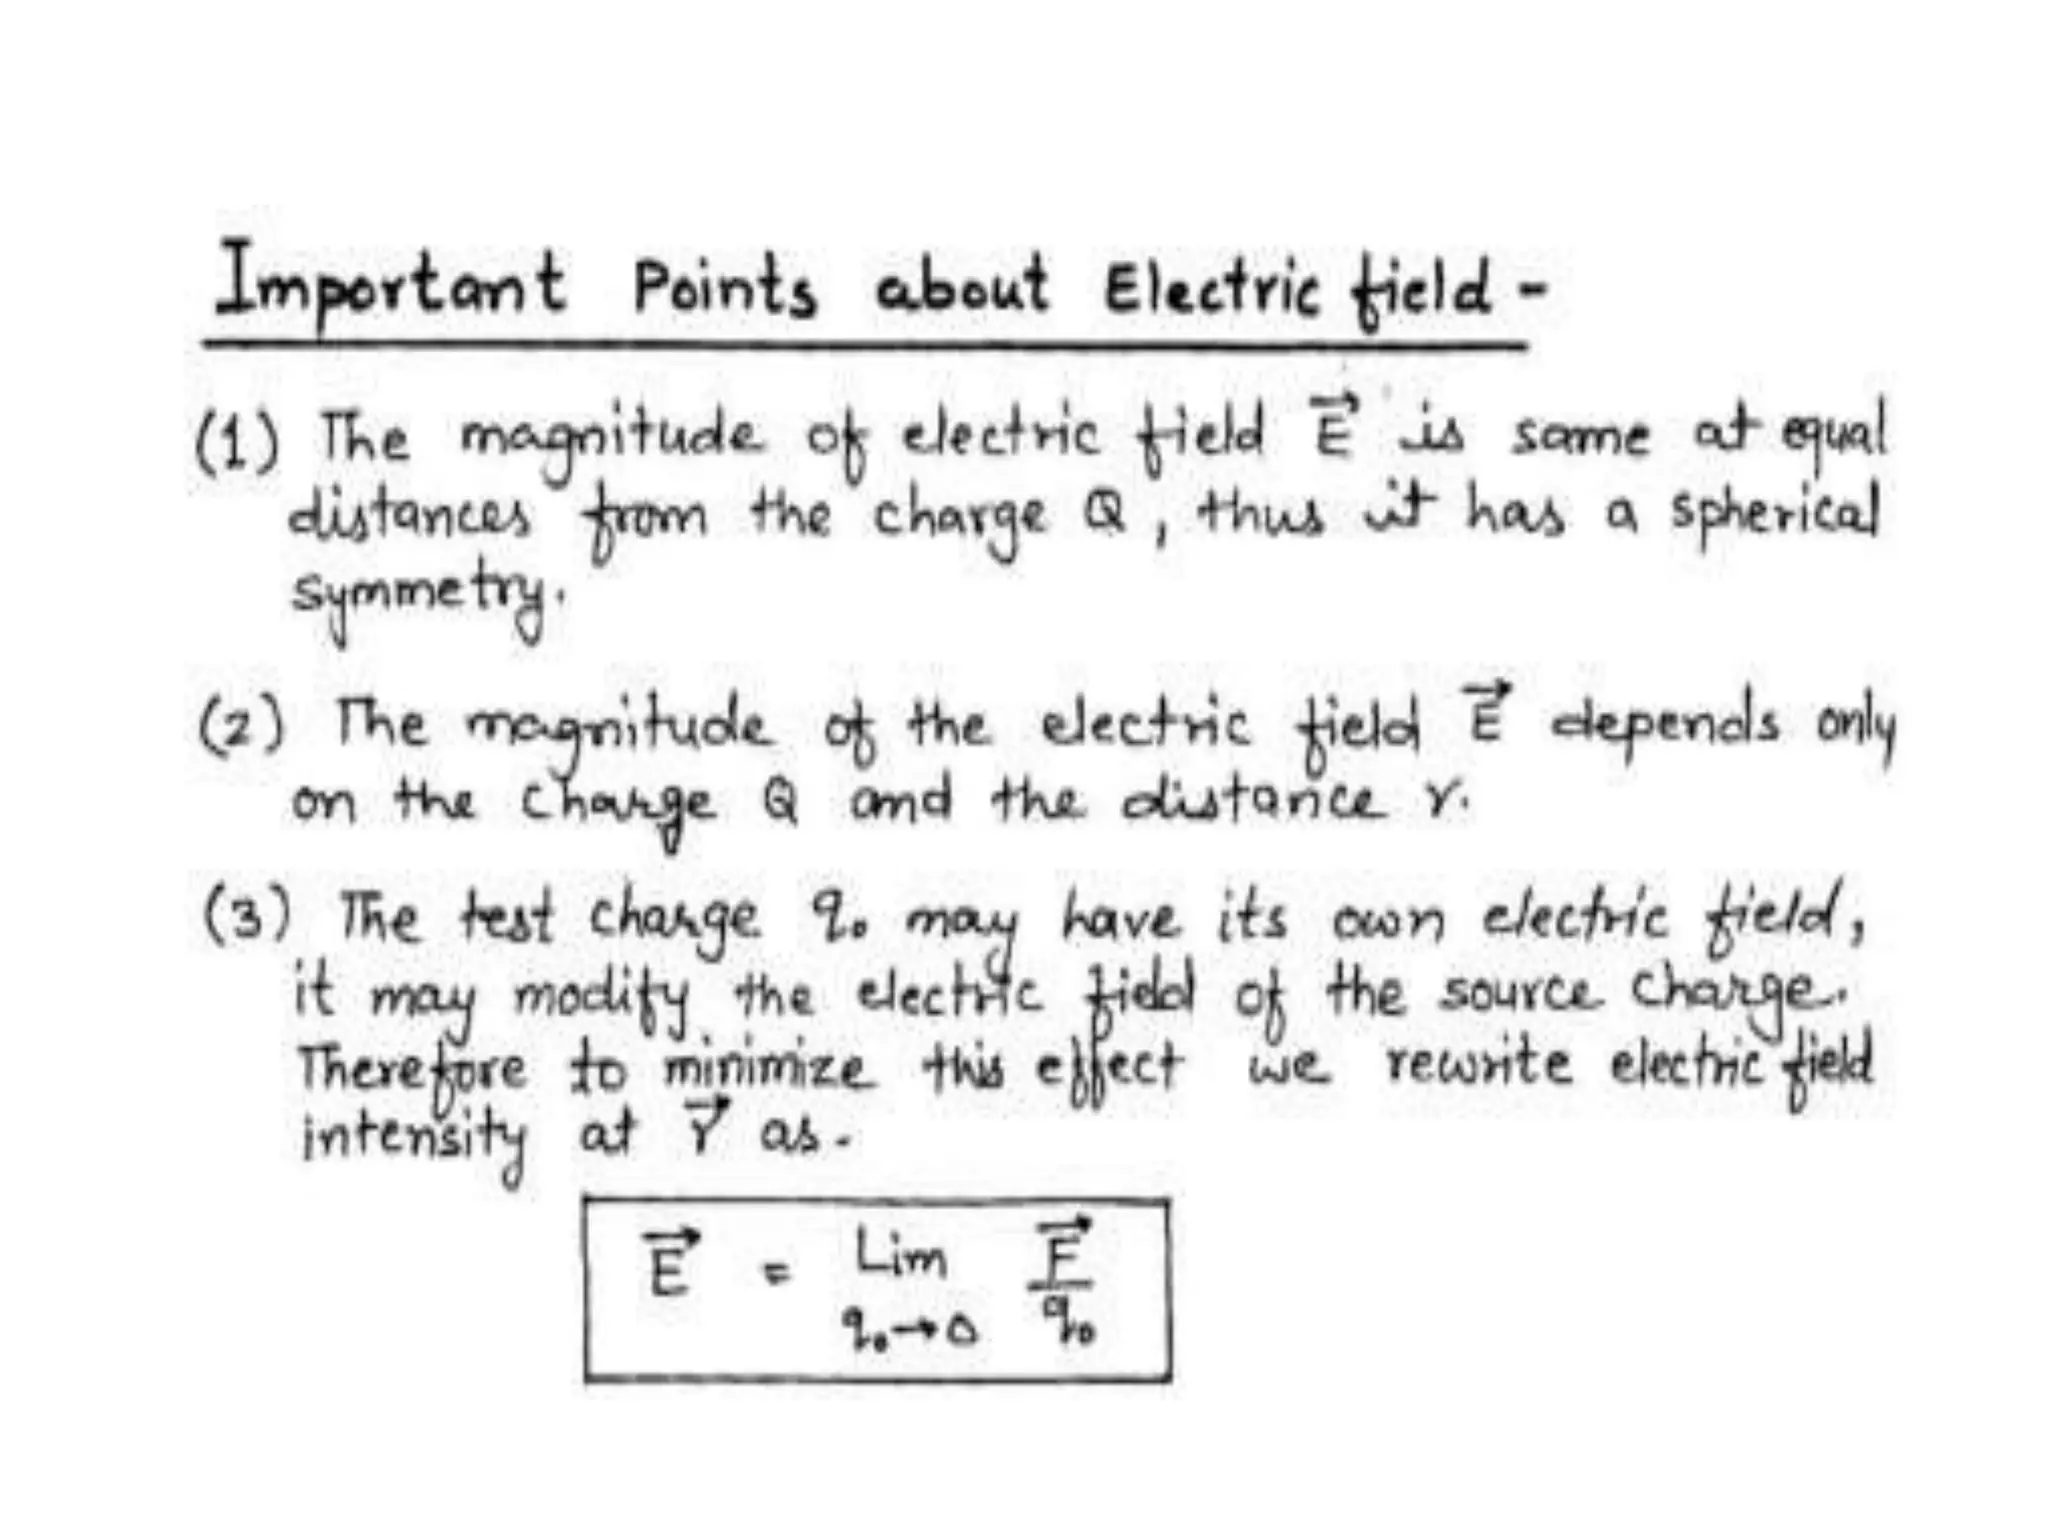 Important Points about Electric field -
(1) The magnitude of electric field E⃗ is same at equal
distances from the charge Q, thus it has a spherical
symmetry.
(2) The magnitude of the electric field E⃗ depends only
on the charge Q and the distance r.
(3) The test charge q₀ may have its own electric field,
it may modify the electric field of the source charge.
Therefore to minimize this effect we rewrite electric field
intensity at r⃗ as -
E⃗ = Lim q₀→0 F⃗/q₀